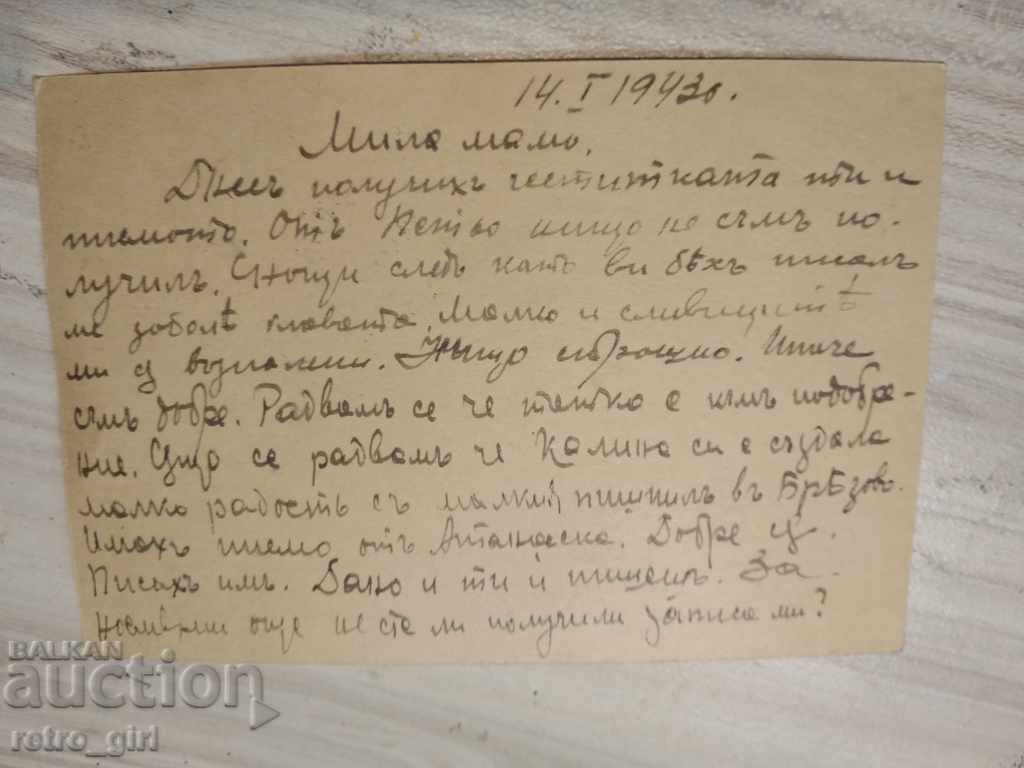 14. I 1943г.
Мила мамо,
Днесъ получихъ честитката ти и
писмото. Отъ Петьо нищо не съмъ по-
лучилъ. Снощи следъ като ви бѣхъ писалъ
ме заболѣ главата. Малко и сливицитѣ
ми сѫ възпалени. Нищо страшно. Иначе
съмъ добре. Радвамъ се че татко е към подобре-
ние. Също се радвамъ че Калина си е създала
малко радость съ малкия пишнилъ въ Брѣзово.
Имахъ писмо отъ Атанаска. Добре сѫ.
Писахъ имъ. Дано и ти ѝ пишешъ. За
Ноемврий още не сте ли получили записа ми?
BALKAN
auction
retro_girl